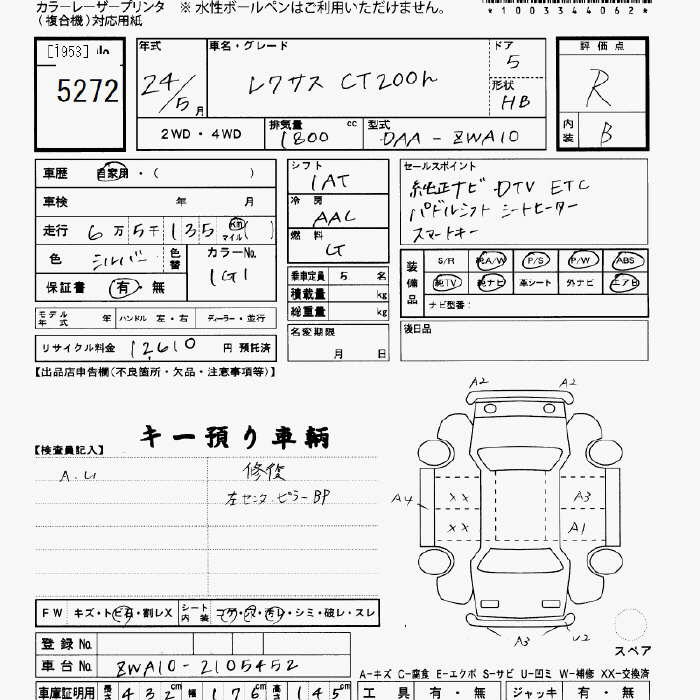 カラーレーザープリンタ ※ 水性ボールペンはご利用いただけません。
(複合機)対応用紙
*100344062*
[1953]
5272
年式 24/5月
車名・グレード レクサス CT200h
ドア 5
形状 HB
2WD・4WD
排気量 1800 cc
型式 DAA-ZWA10
評価点 R
内装 B
車歴 自家用・( )
車検 年 月
走行 6万5千135 km マイル( )
色 シルバー 色替
カラーNo. 1G1
保証書 有・無
モデル年式 年 ハンドル 左・右 ディーラー・並行
リサイクル料金 12,610 円 預託済
シフト 1AT
冷房 AAC
燃料 G
乗車定員 5 名
積載量 kg
総重量 kg
名変期限 月 日
セールスポイント
純正ナビ DTV ETC
パドルシフト シートヒーター
スマートキー
装備品 S/R 純A/W P/S P/W ABS
純TV 純ナビ 革シート 外ナビ エアB
ナビ型番:
後日品
【出品店申告欄(不良箇所・欠品・注意事項等)】
キー預り車輌
【検査員記入】
修復
左センターピラーBP
A2 A2
A4 XX A3
XX A1
A3 U2
スペア
FW キズ・トビ石・割レX シート内装 コゲ・穴・汚レ・シミ・破レ・スレ
登録No.
車台No. ZWA10-2105452
A-キズ C-腐食 E-エクボ S-サビ U-凹ミ W-補修 XX-交換済
車庫証明用 長さ 432cm 幅 176cm 高さ 145cm
工具 有・無 ジャッキ 有・無